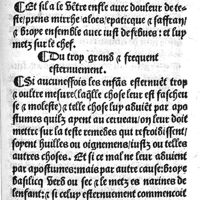 Et sil a le vẽtre enfle avec douleur de te-
ste/prens mirrhe aloes/epaticque & saffran/
& broye ensemble avec iust de febues: et luy
metz sur le chef.
Du trop grand & frequent
esternuement.
Si aucunesfois les enfãs esternuẽt trop
oultre mesure/laq̃lle chose leur est fascheu
se & moleste/& telle chose luy aduiẽt par apo
stumes quilz ayent au cerueau/on leur doit
mettre sur la teste remedes qui refroidissent/
soyent huilles ou oignemens/iustz ou telles
autres choses. Et si ce mal ne leur aduient
par apostumes: mais par autre cause: broye
basilicq̃ verd ou sec & le metz es narines de
lenfant: & si celuy esternuement commencoit